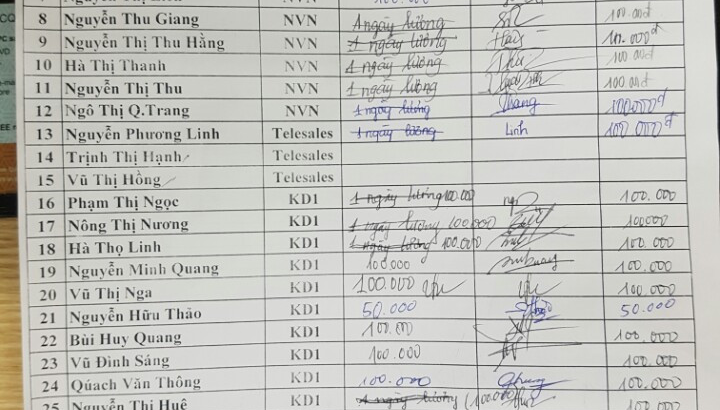 8 Nguyễn Thu Giang NVN 1 ngày lương 100.000đ
9 Nguyễn Thị Thu Hằng NVN 1 ngày lương 100.000đ
10 Hà Thị Thanh NVN 1 ngày lương 100.000đ
11 Nguyễn Thị Thu NVN 1 ngày lương 100.000đ
12 Ngô Thị Q.Trang NVN 1 ngày lương Trang 100.000đ
13 Nguyễn Phương Linh Telesales 1 ngày lương Linh 100.000đ
14 Trịnh Thị Hạnh Telesales
15 Vũ Thị Hồng Telesales
16 Phạm Thị Ngọc KD1 1 ngày lương 100.000 100.000
17 Nông Thị Nương KD1 1 ngày lương 100.000 100000
18 Hà Thọ Linh KD1 1 ngày lương 100.000 100.000
19 Nguyễn Minh Quang KD1 100.000 100.000
20 Vũ Thị Nga KD1 100.000 100.000
21 Nguyễn Hữu Thảo KD1 50.000 50.000
22 Bùi Huy Quang KD1 100.000 100.000
23 Vũ Đình Sáng KD1 100.000 100.000
24 Qúach Văn Thông KD1 100.000 100.000
25 Nguyễn Thị Huệ KD1 1 ngày lương (100.000